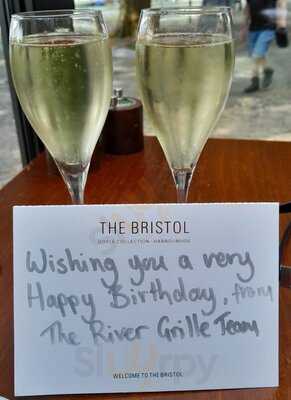 THE BRISTOL
DOYLE COLLECTION · HARBOURSIDE
Wishing you a very
Happy Birthday, from
The River Grille Team
Sluurpy
WELCOME TO THE BRISTOL